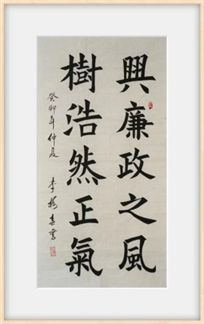 興廉政之風
樹浩然正氣
癸卯年仲夏